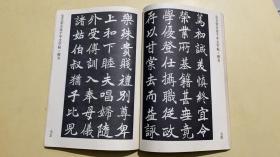 篤初誠美慎終宜令
榮業所基籍甚無竟
學優登仕攝職從政
存以甘棠去而益詠
樂殊貴賤禮別尊卑
上和下睦夫唱婦隨
外受傅訓入奉母儀
諸姑伯叔猶子比兒